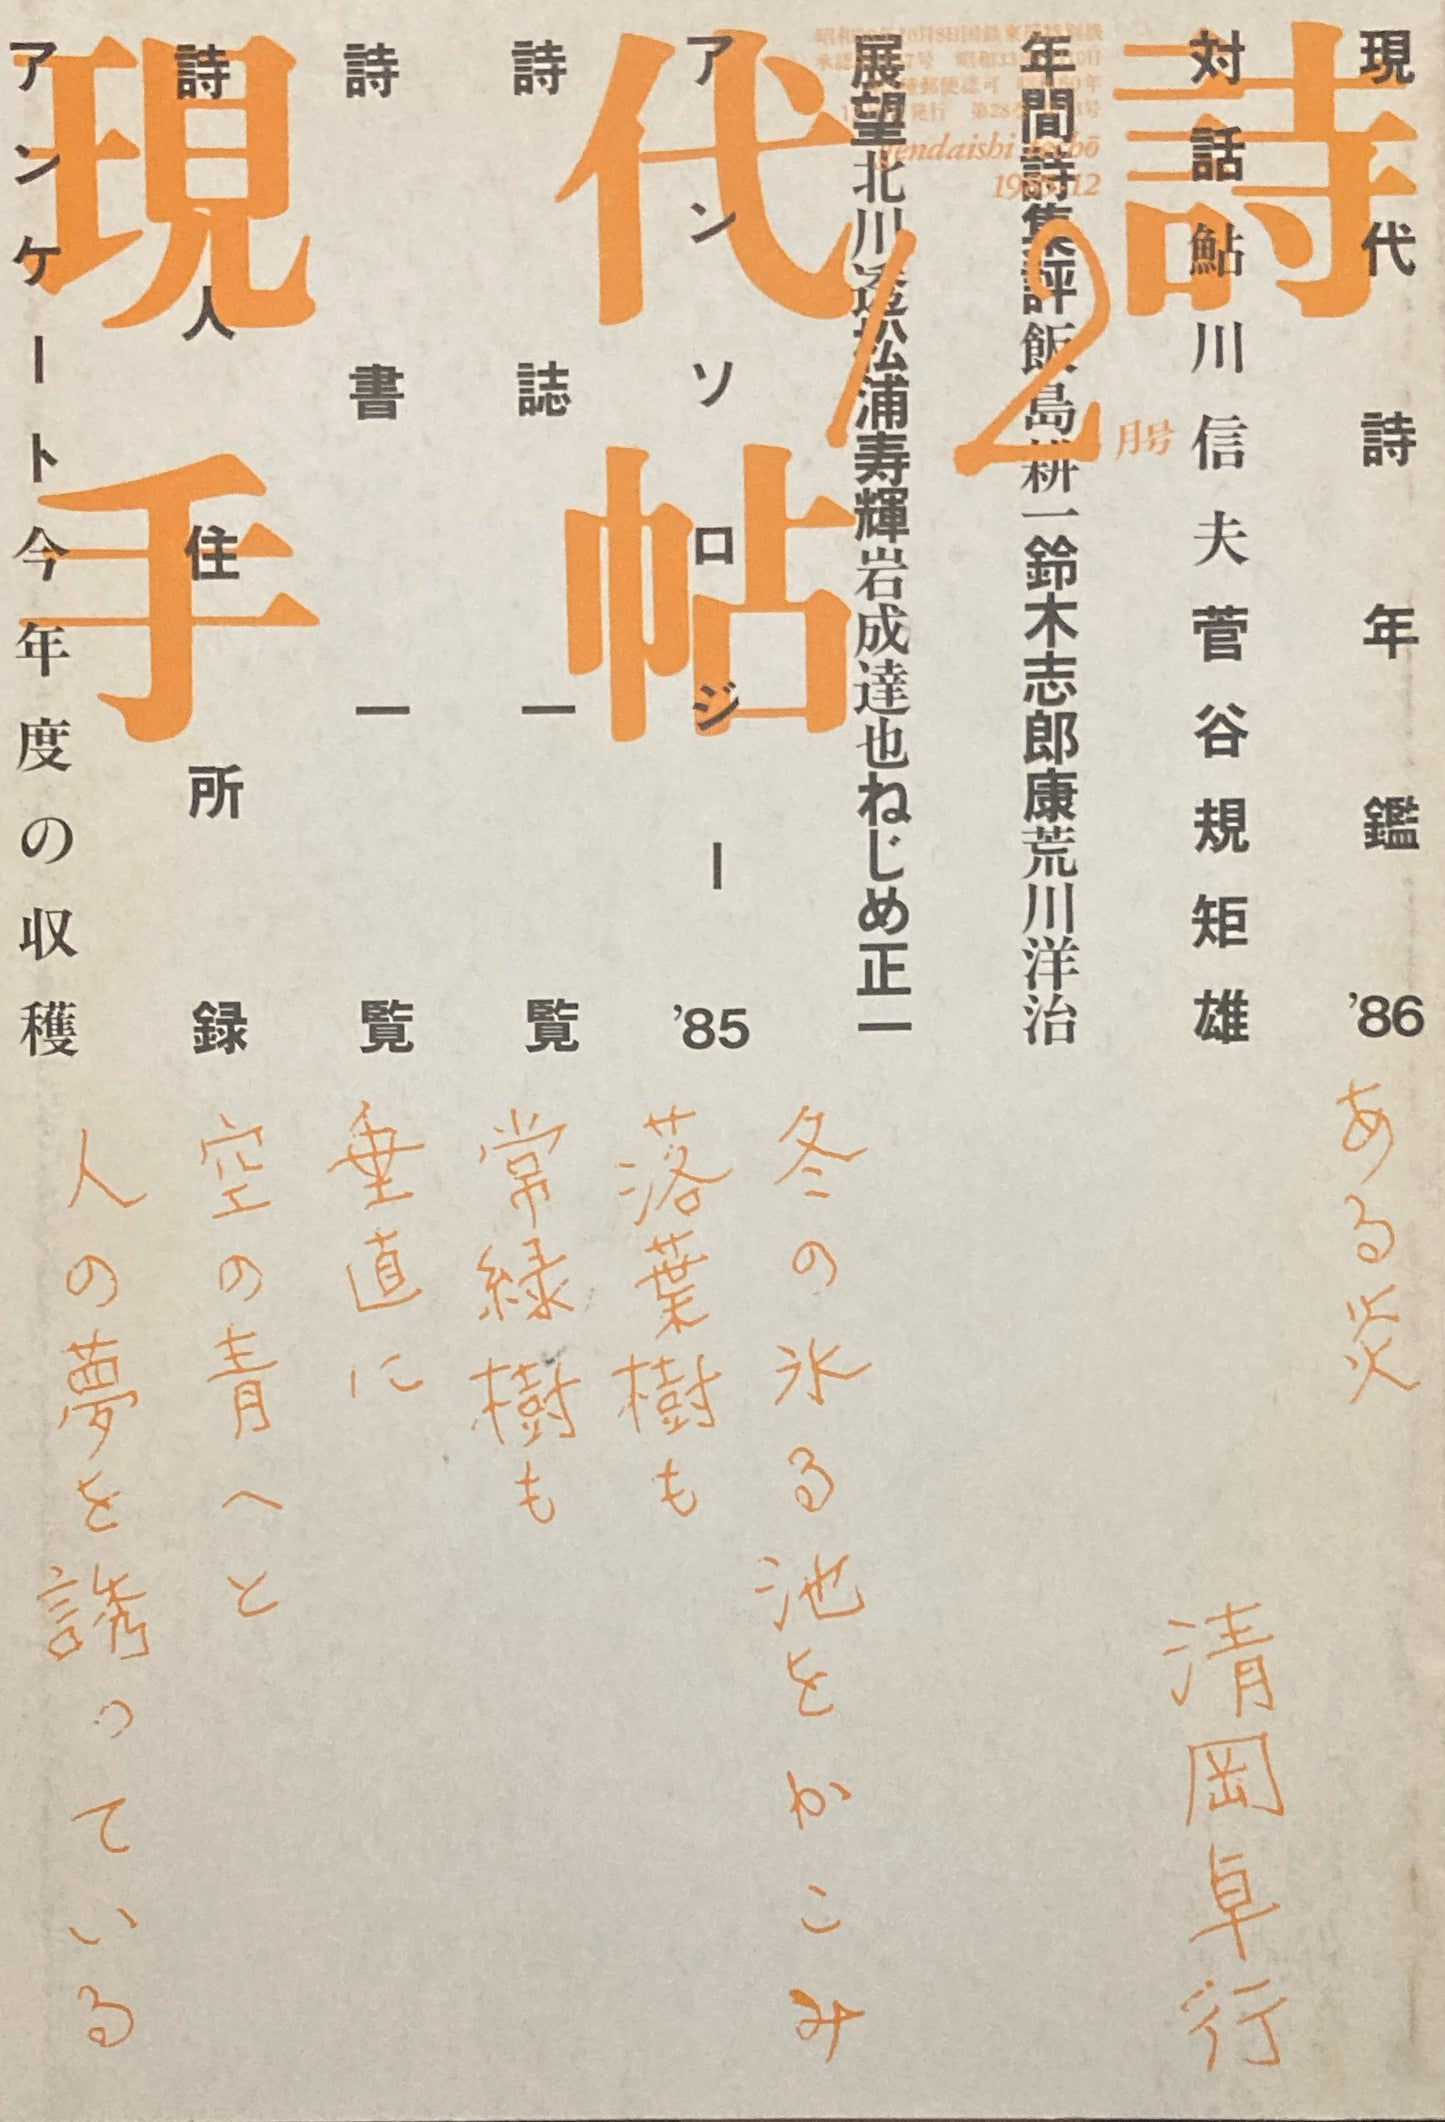 現代詩手帖
12月号
gendaishi techō
1985/12
現代詩年鑑'86
対話鮎川信夫菅谷規矩雄
年間詩集評飯島耕一鈴木志郎康荒川洋治
展望北川透松浦寿輝岩成達也ねじめ正一
アンソロジー'85
詩誌一覧
詩書一覧
詩人住所録
アンケート今年度の収穫
ある炎
清岡卓行
冬の氷る池をかこみ
落葉樹も
常緑樹も
垂直に
空の青へと
人の夢を誘っている